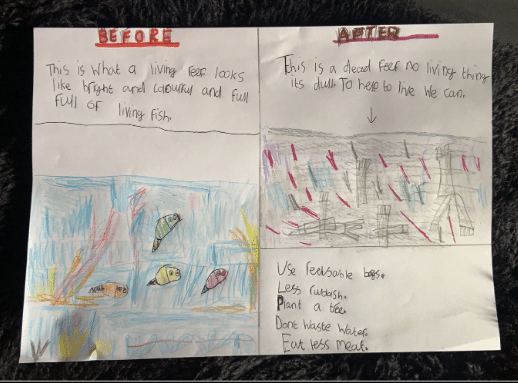 BEFORE
This is what a living reef looks
like bright and colourful and full
full of living fish.
AFTER
This is a dead reef no living thing
its dull. To help to live we can.
Use reausable bags.
Less rubbish.
Plant a tree.
Dont waste water.
Eat less meat.